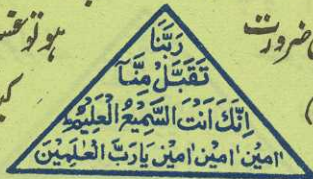 ضرورت
ہو تو
رَبَّنَا
تَقَبَّلْ مِنَّآ
اِنَّكَ اَنْتَ السَّمِيْعُ الْعَلِيْمُ
اٰمِيْن اٰمِيْن اٰمِيْن يَارَبَّ الْعٰلَمِيْنَ